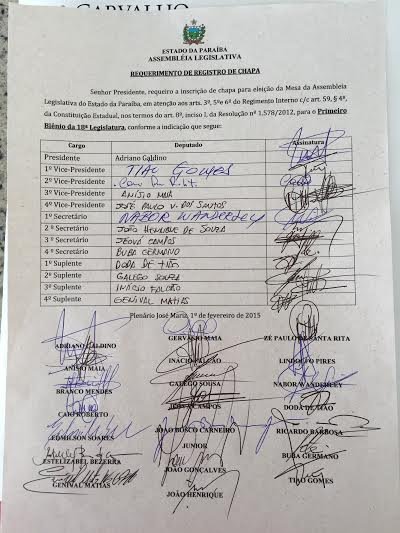 CARVALHO
ESTADO DA PARAÍBA
ASSEMBLÉIA LEGISLATIVA
REQUERIMENTO DE REGISTRO DE CHAPA
Senhor Presidente, requeiro a inscrição de chapa para eleição da Mesa da Assembleia
Legislativa do Estado da Paraíba, em atenção aos arts. 3º, 5º e 6º do Regimento Interno c/c art. 59, § 4º,
da Constituição Estadual, nos termos do art. 8º, inciso I, da Resolução nº 1.578/2012, para o Primeiro
Biênio da 18ª Legislatura, conforme a indicação que segue:
Cargo Deputado Assinatura
Presidente Adriano Galdino
1º Vice-Presidente TIAO GOMES
2º Vice-Presidente
3º Vice-Presidente ANISIO MAIA
4º Vice-Presidente JOSÉ PAULO V. DOS SANTOS
1º Secretário NABOR WANDERLEY
2º Secretário JOÃO HENRIQUE DE SOUZA
3º Secretário JEOVÁ CAMPOS
4º Secretário BUBA GERMANO
1º Suplente DODA DE TIÃO
2º Suplente GALEGO SOUZA
3º Suplente INÁCIO FALCÃO
4º Suplente GENIVAL MATIAS
Plenário José Mariz, 1º de fevereiro de 2015
ADRIANO GALDINO GERVASIO MAIA ZÉ PAULO DE SANTA RITA
ANISIO MAIA INACIO FALCÃO LINDOLFO PIRES
BRANCO MENDES GALEGO SOUSA NABOR WANDERLEY
CAIO ROBERTO CAMPOS DODA DE TIAO
EDMILSON SOARES JOÃO BOSCO CARNEIRO JUNIOR RICARDO BARBOSA
ESTELIZABEL BEZERRA JOÃO GONÇALVES BUBA GERMANO
GENIVAL MATIAS JOÃO HENRIQUE TIAO GOMES